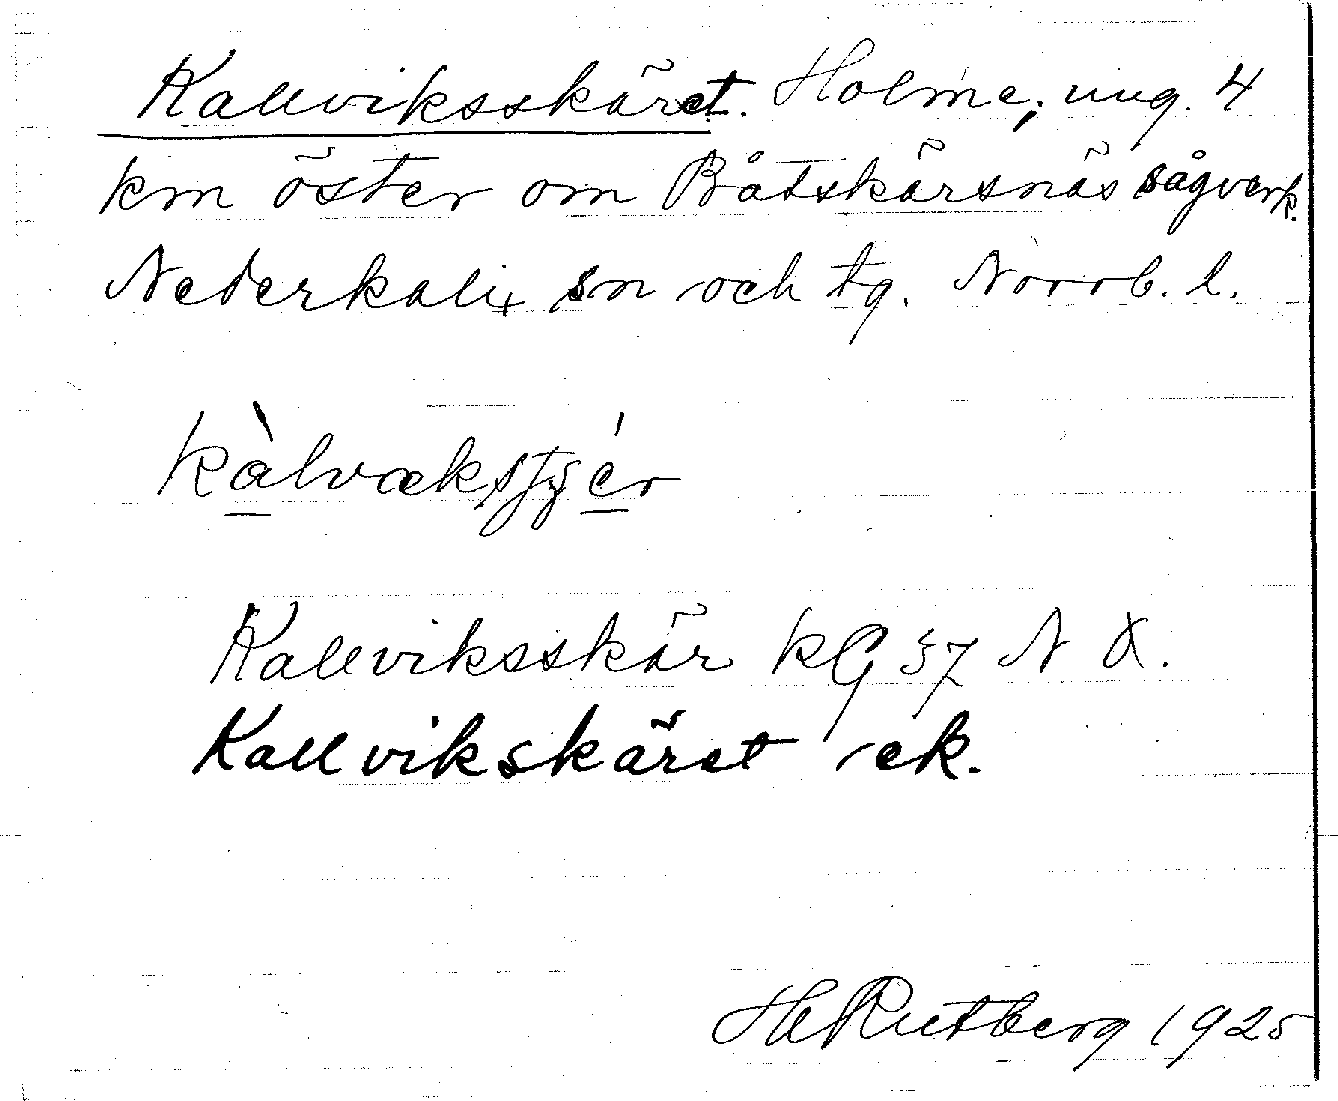 Kallviksskäret. Holme, ung. 4
km öster om Båtskärsnäs sågverk.
Nederkalix sn och tg. Norrb. l.
Kallviksskär KG 37 N Ö.
Kallvikskäret ek.
H Rutberg 1925